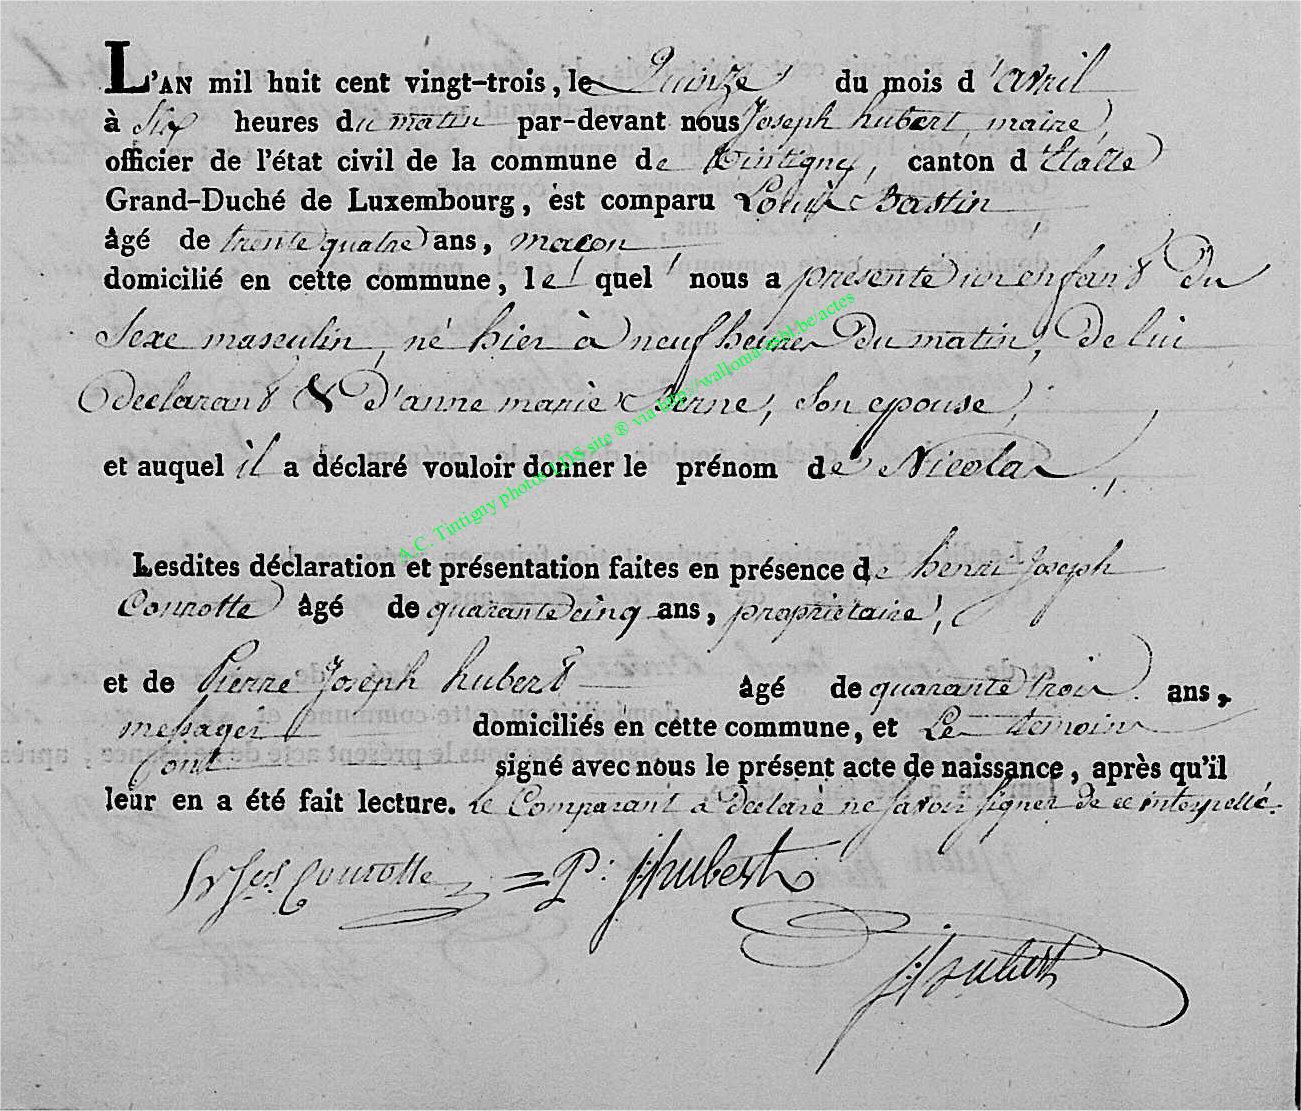 L'AN mil huit cent vingt-trois, le Quinze du mois d'avril
à Six heures du matin par-devant nous Joseph hubert, maire,
officier de l'état civil de la commune de Tintigny, canton d'Etalle
Grand-Duché de Luxembourg, est comparu Louis Bastin
âgé de trente quatre ans, macon
domicilié en cette commune, le quel nous a presenté un enfant Du
Sexe masculin, né hier à neuf heures Du matin, De lui
Declarant & D'anne marie Perne, Son epouse,
et auquel il a déclaré vouloir donner le prénom de Nicolas,
A.C. Tintigny photos LDS site ® via http://wallonia.asbl.be/actes
Lesdites déclaration et présentation faites en présence de henri Joseph
Conrotte âgé de quarante cinq ans, propriétaire,
et de Pierre Joseph hubert âgé de quarante trois ans,
messager domiciliés en cette commune, et Les temoins
Sont signé avec nous le présent acte de naissance, après qu'il
leur en a été fait lecture. Le Comparant a declaré ne savoir signer de ce interpellé.
Conrotte = P: J: hubert
J: hubert